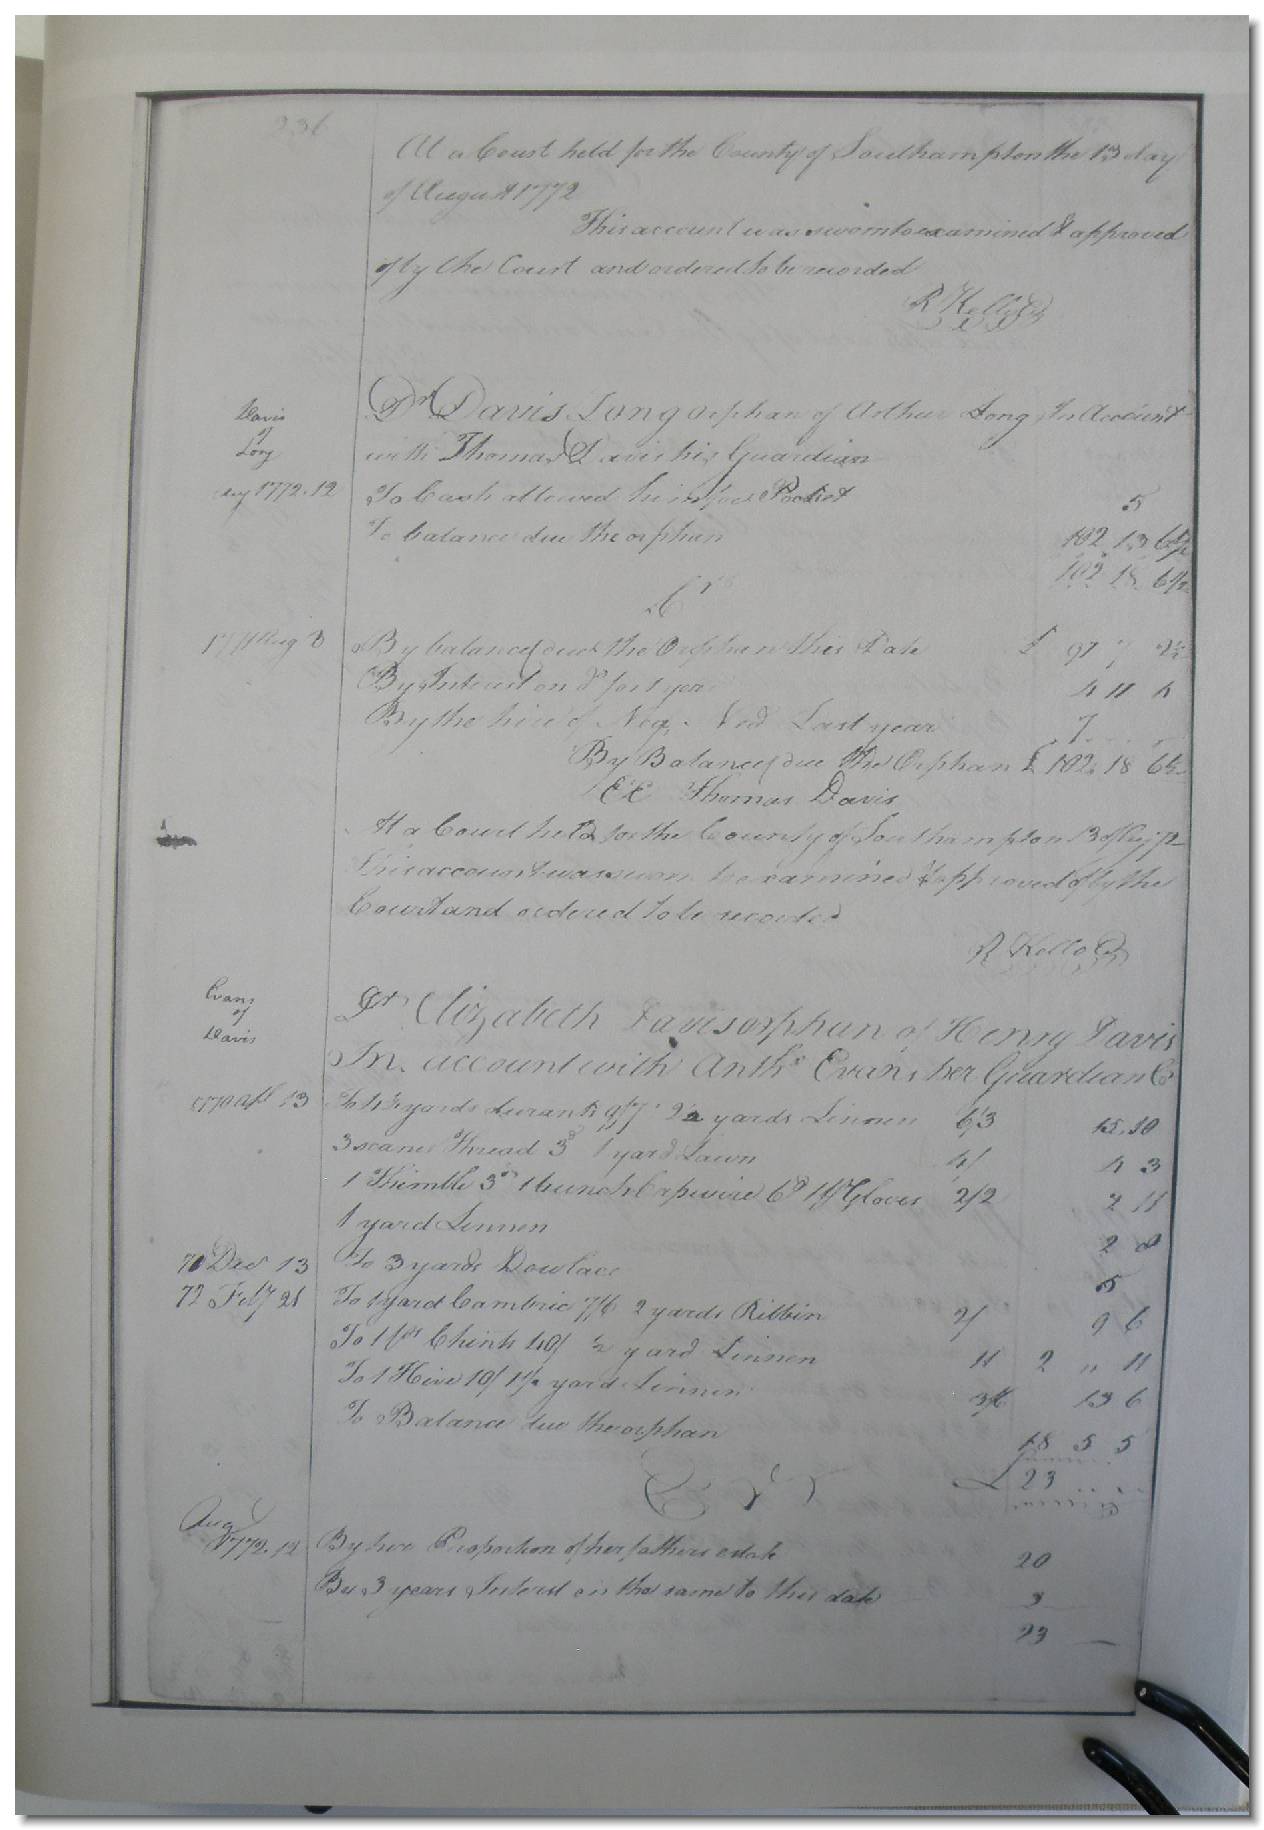 236
At a Court held for the County of Southampton the 13 day
of August 1772
This account was sworn to examined & approved
of by the Court and ordered to be recorded
R Kello
Davis
of
Long
Dr Davis Long orphan of Arthur Long In Account
with Thomas Davis his Guardian
Aug 1772. 12 To Cash allowed him for Pocket 5
To balance due the orphan 102 13 6½
102 18 6½
Cr
1771 Aug 8 By balance due the Orphan this Date £ 97 7 2½
By Interest on Do for 1 year 4 11 4
By the hire of Neg. Ned Last year
By Balance due the Orphan £ 102. 18 6½
EE Thomas Davis
At a Court held for the County of Southampton 13 of Aug 72
This account was sworn to examined & approved of by the
Court and ordered to be recorded
R Kello
Evans
of
Davis
Dr Elizabeth Davis orphan of Henry Davis
In account with Anthy Evans her Guardian Cr
1770 Apl 13 To yards durant 9/7 2½ yards Linnen 6/3 15. 10
3 scanes Thread 3d 1 yard Lawn 4/ 4 3
1 Thimble 3d 1 bunch Capwire 6d 1 pr Gloves 2/2 2 11
1 yard Linnen 2 8
70 Dec 13 To 3 yards Dowlace 5
72 Feby 21 To 1 yard Cambric 7/6 2 yards Ribbin 2/ 9 6
To 1 ps Chints 40/ ½ yard Linnen 11 2 " 11
To 1 10/ yard Linnen 3/6 13 6
To Balance due the orphan 18 5 5
£ 23
Cr
Aug
1772. 12 By her Proportion of her fathers estate 20
By 3 years Interest on the same to this date 3
23